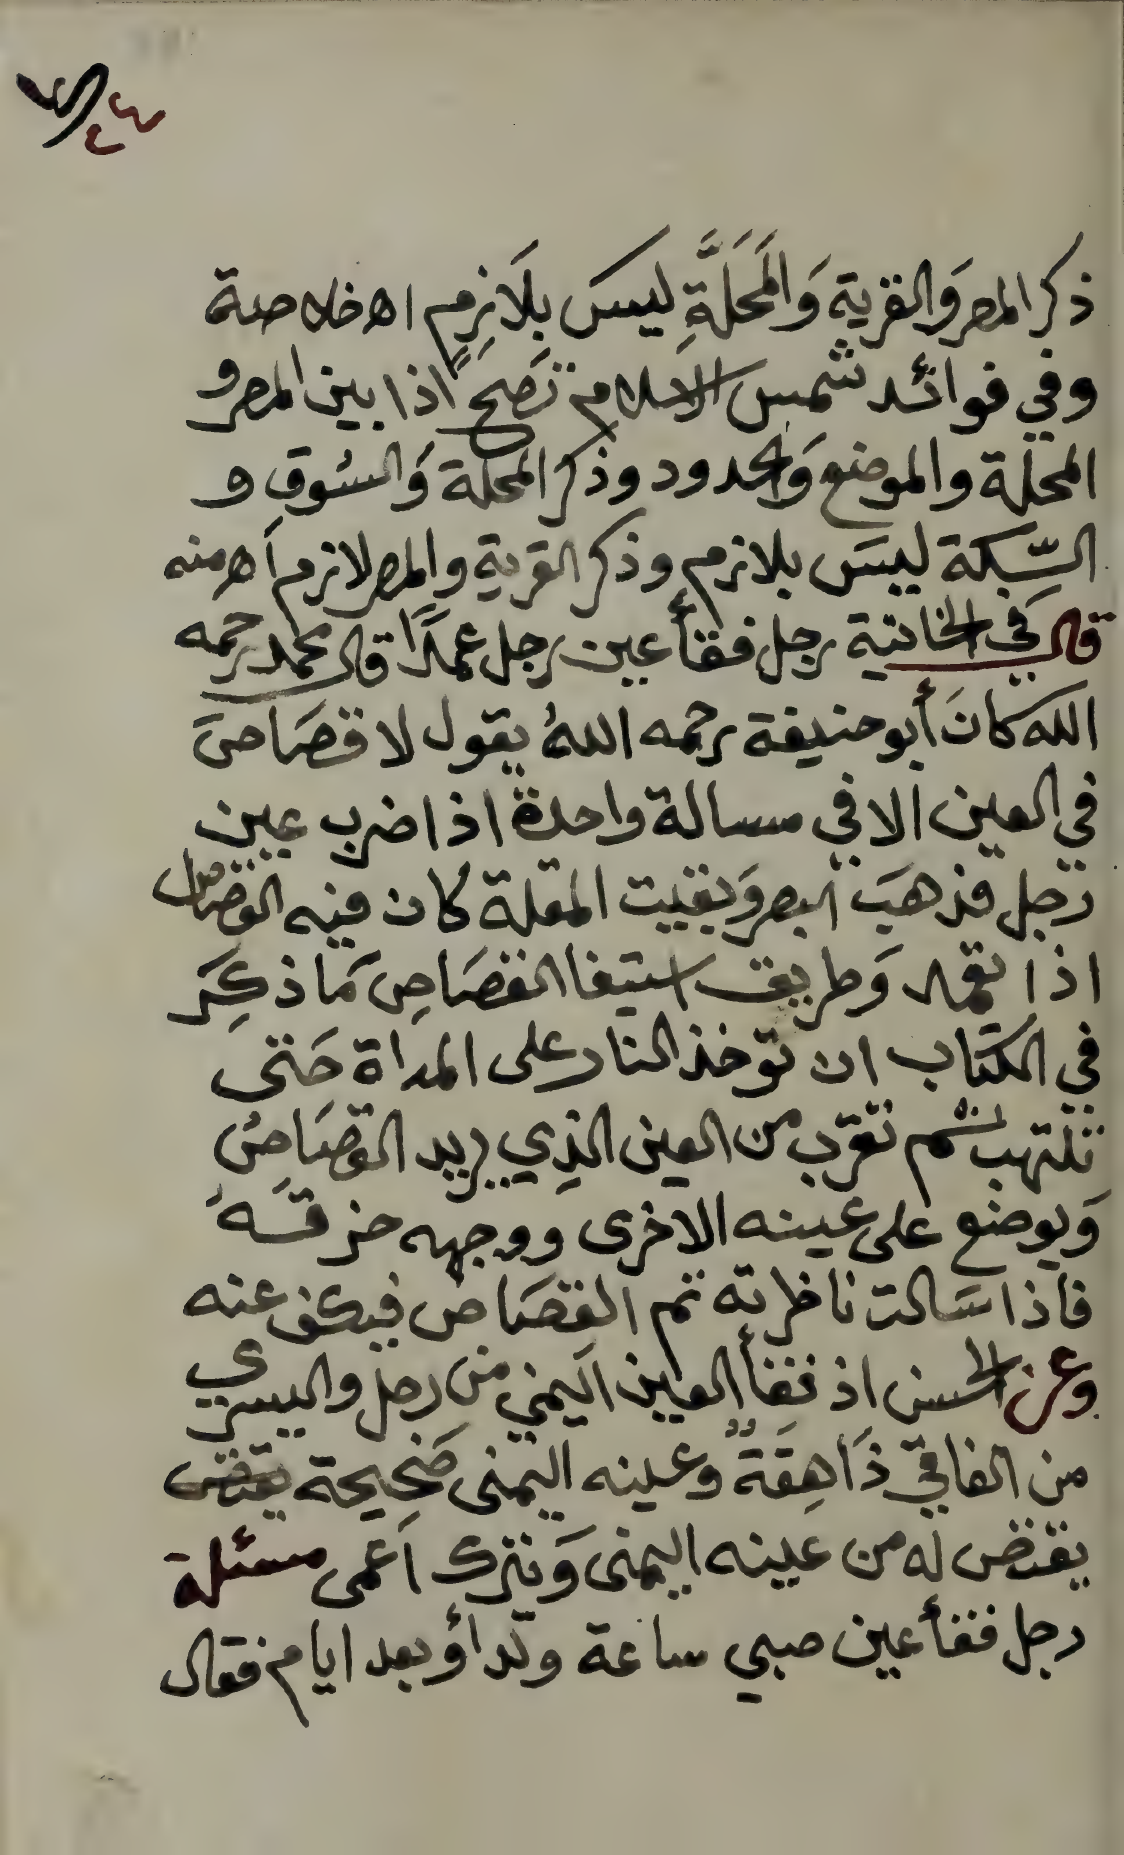 ذكر المصر والقرية وَالمَحَلَّةِ ليسَ بلَازِم اه خلاصة
وفي فوائد شمس الاسلام تصَح اذا بين المصر و
المحلة والموضع وَالحدود وذكر المحلة وَالسُوق و
السِّكة ليسَ بلازم وذكر القرية والمصر لازم اَه منه
قال في الخانية رجل فقأ عين رجل عمدًا قال محمد رحمه
الله كانَ أبو حنيفة رحمه اللهُ يقول لا قصَاصَ
في العين الا في مسالة واحدة اذا ضرب عين
رَجل فذهبَ البصر وَبقيت المقلة كان فيه القصاص
اذا تعمد وَطريق استيفا القصَاصِ مَا ذكِرَ
في الكتَاب ان توخذ النار على المراة حَتى
تلتهب ثم تقرّب من العين الذِي يريد القصَاصُ
وَيوضع على عينه الاخرى ووجهه خرقَةُ
فاذا سَالت ناظرته تم القصَاص فيكف عنه
وعن الحسن اذ فقأ العين اليمني من رجل واليسري
من الفاقي ذَاهِقَةٌ وعينه اليمنى صَحِيحة يقتص
يقتص له من عينه اليمنى وَنترك اَعمى مسئلة
رجل فقأ عين صبي ساعة ولد أو بعد ايام فقال